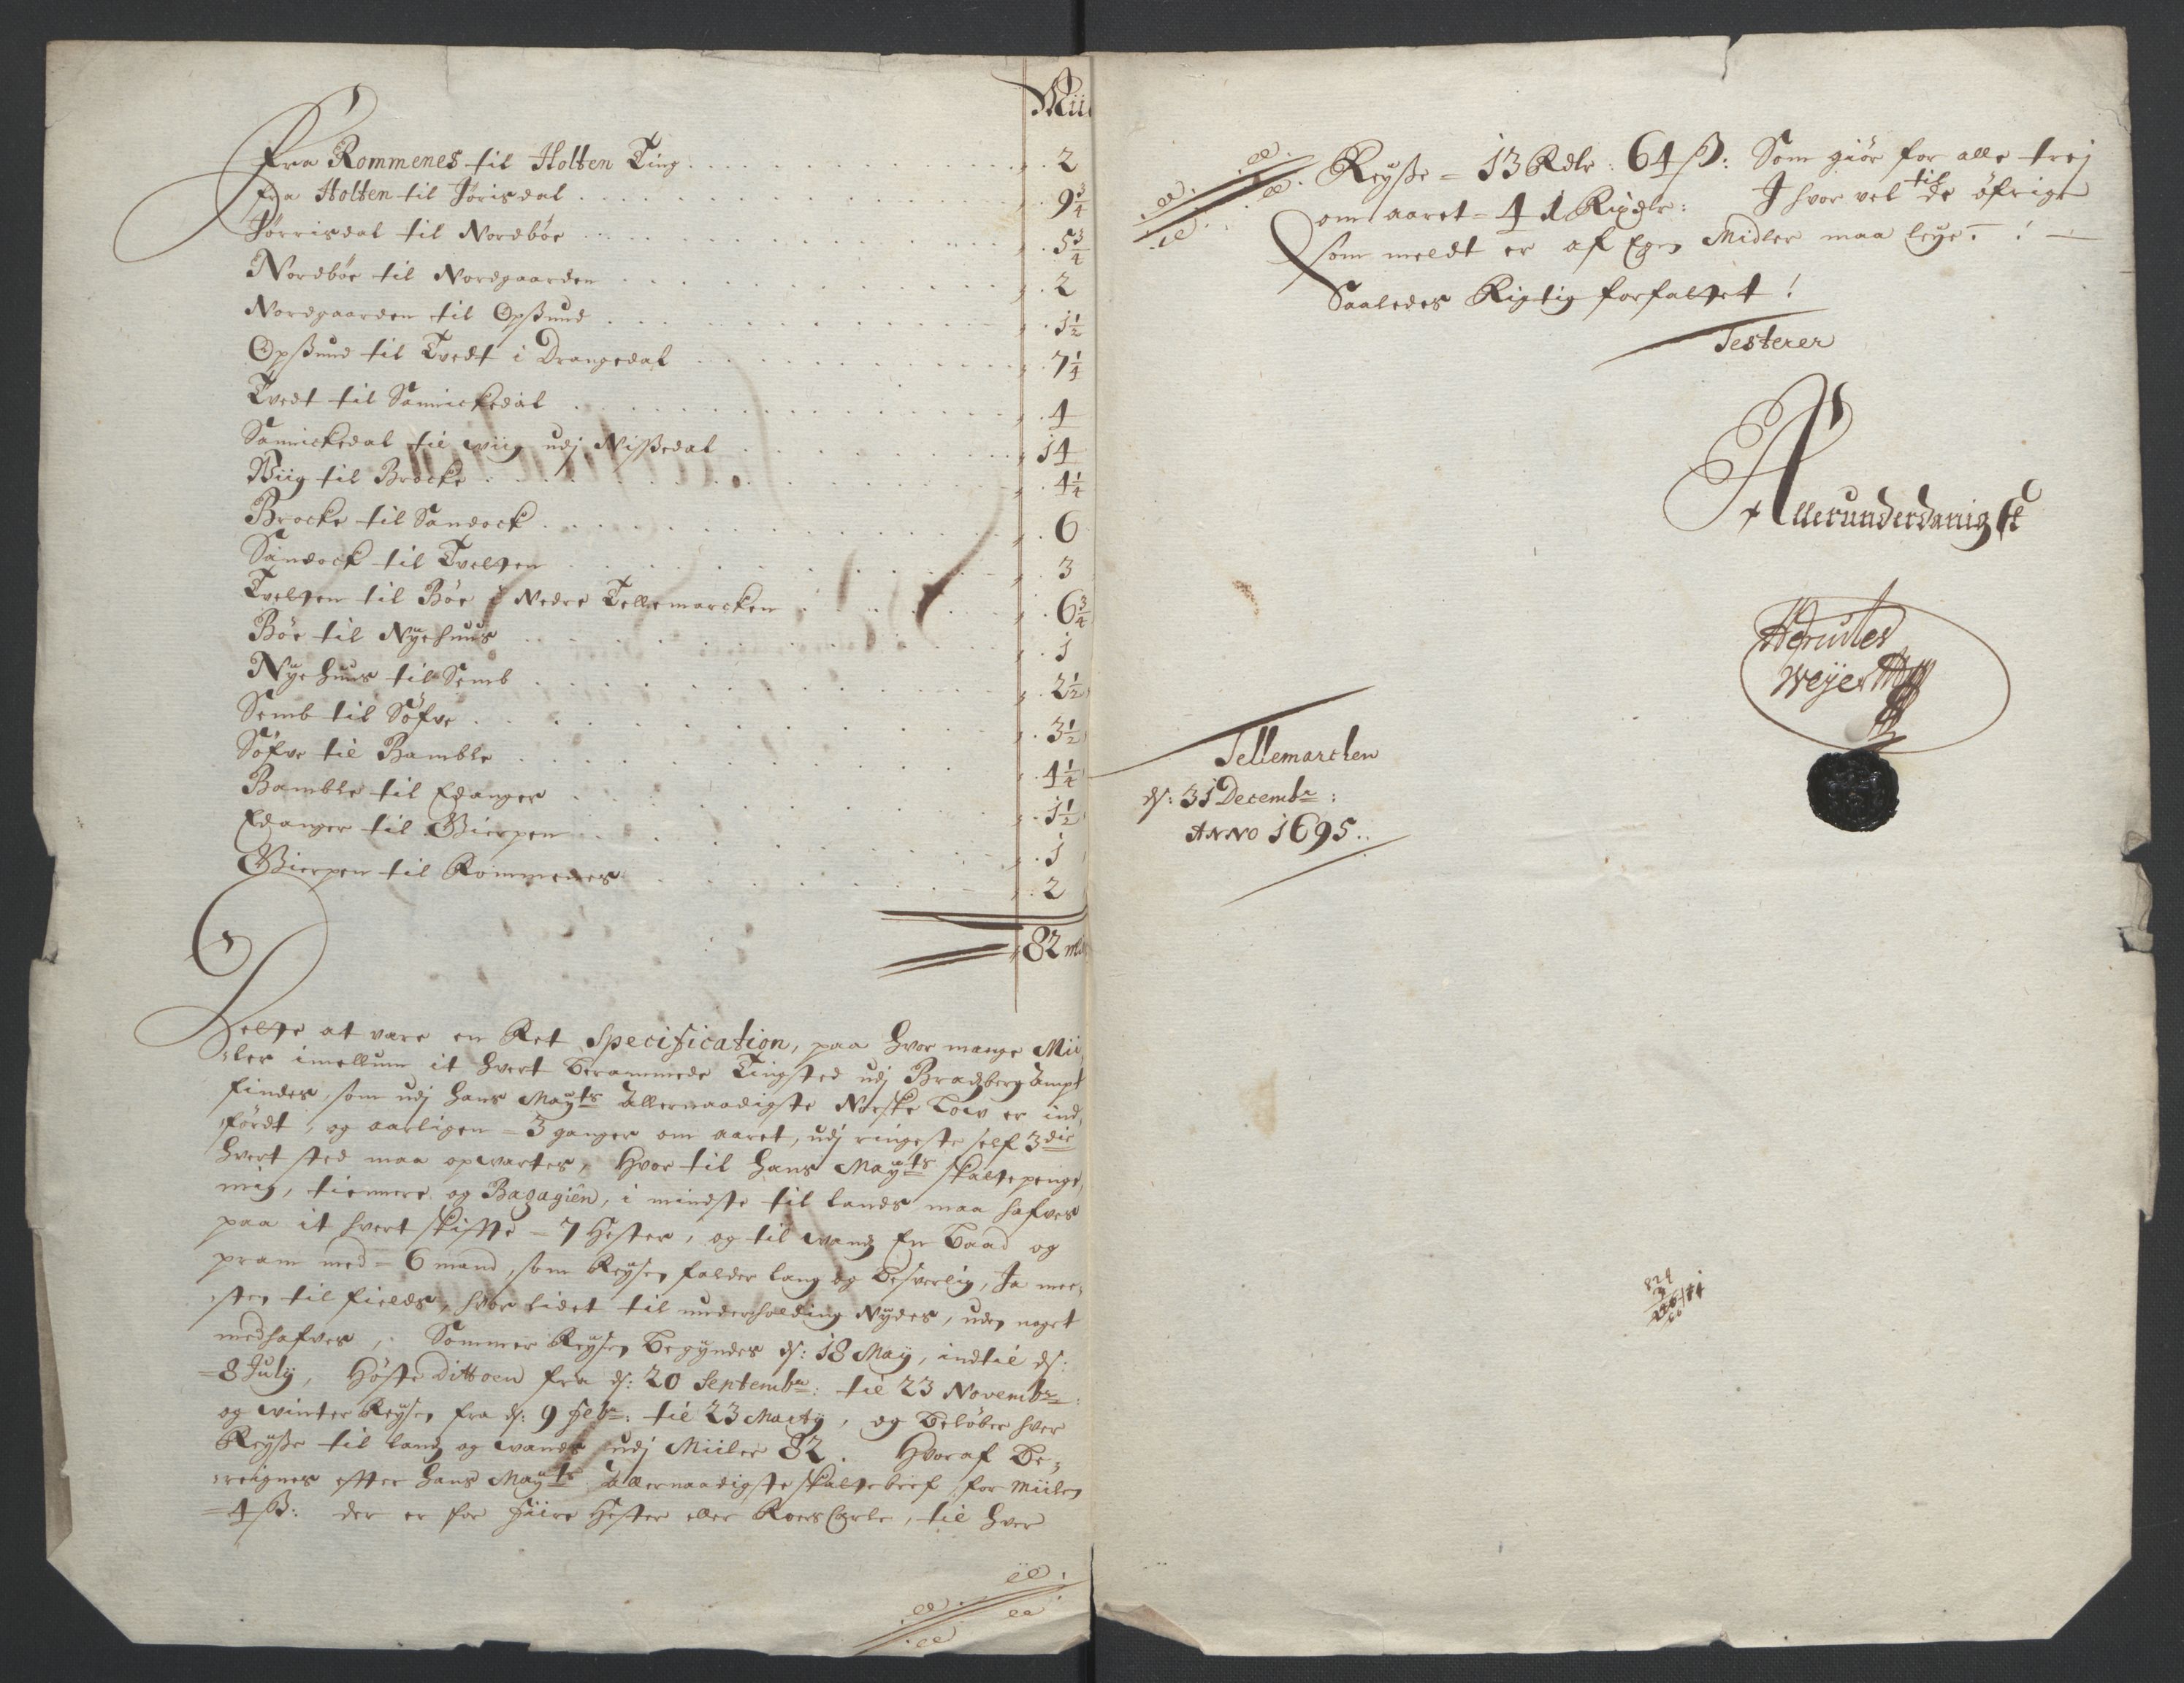 Miil
Fra Rommenes til Holten Ting . . . 2
fra Holten til Jörisdal . . . 9 3/4
Jörrisdal til Nordböe . . . 5 3/4
Nordböe til Nordgaarden . . . 2
Nordgaarden til Opsund . . . 1 1/2
Opsund til Tvedt i Drangedal . . . 7 1/4
Tvedt til Sannickedal . . . 4
Sannickedal til wiig udj Nissedal . . . 14
Wiig til Brocke . . . 4 1/4
Brocke til Sandock . . . 6
Sandock til Tvelten . . . 3
Tvelten til Böe i Nedre Tellemarcken . . . 6 3/4
Böe til Nyehuus . . . 1
Nyehuus til Semb . . . 2 1/2
Semb til Söfve . . . 3 1/2
Söfve til Bamble . . . 4 1/4
Bamble til Edanger . . . 1 1/2
Edanger til Gierpen . . . 1
Gierpen til Rommenes . . . 2
82 mil
at være en Ret Specification, paa hvor mange Mii
ler imellum it hvert berammede Tingsted udj Bradsberg Ampt
findes, som udj hans Mayts Allernaadigste Norske Low er ind,
fördt, og aarligen = 3 ganger om aaret, udj ringeste self 3die
hvert sted maa opwartes, hvor til hans Mayts skatte penge,
mig, tiennere og Bagagien, i mindste til lands maa hafves
paa it hvert skiffte = 7 hester, og til wands En baad og
pram med = 6 mand, som Reysen falder lang og besverlig, Ja mee,
sten til fields, hvor lidet til underholding Nydes, uden noget
medhafves, Sommer Reysen begyndes ds: 18 May, indtil ds:
= 8 July, Höste dittoen fra ds: 20 Septembr: til 23 Novembr:
og winter Reysen fra ds: 9 Febr: til 23 Marty, og belöber hver
Reysse til lands og wands udj Miiler 82. Hvoraf be,
reignes effter hans Mayts Allernaadigste skatte bref, for Miilen
= 4 ß: der er for fiire hester eller Roers Carle, til hver
Reysse = 13 Rdlr: 64 ß: Som giör for alle trej
om aaret = 41 Rixdlr: J hvor vel til de öfrige
som meldt er af Egen Midler maa leye !
Saaledes Rigtig forfattet !
Testerer
Allerunderdanigst
Hercules
Weyer
Tellemarchen
ds: 31 Decembr:
Anno 1695.